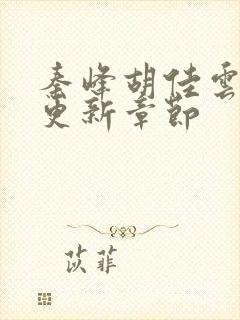 秦峰胡佳雲
更新章節
苡菲